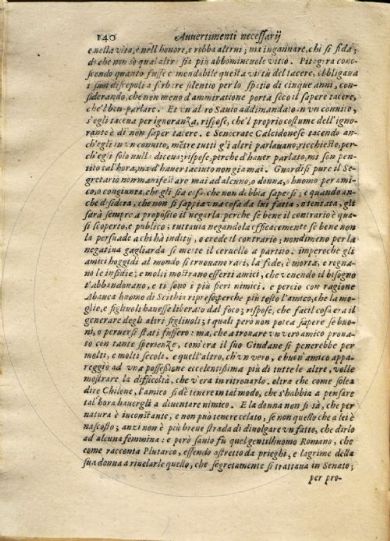 140 Auuertimenti necessarij
e nella vita, e nell'honore, e robba altrui; ma ingannare, chi si fida;
di che non sò qual altro sia più abbomineuole vitio. Pitagira cono-
scendo quanto fusse cōmendabile questa virtù del tacere, obbligaua
i suoi discepoli a serbare silentio per lo spatio di cinque anni, con-
siderando, che non meno d'ammiratione porta seco il sapere tacere,
che'l ben parlare. Et vn altro Sauio addimandato in vn conuito,
s'egli tacena per ignoranza, rispose, che'l proprio costume dell'igno-
rante è di non saper tacere. e Senocrate Calcidonese tacendo an-
ch'egli in vn conuito, mētre tutti gli altri parlauano, richiesto, per-
ch'egli solo nulla diceua; rispose, perche d'hauer parlato, mi son pen-
tito tal hora, ma d'hauer taciuto non gia mai. Guardisi pure il Se-
gretario nō manifestare mai ad alcuno, o donna, o huomo per ami-
co, o congiunta, che gli sia cosa che non debba sapersi; e quando an-
che desidera, che non si sappia vna cosa da lui fatta, o tentata, gli
sarà sempre a proposito il negarla perche se bene il contrario è qua-
si scoperto, e publico; tuttauia negandola efficacemente se bene non
la persuade a chi hà indity, o crede il contrario; nondimeno per la
negatiua gagliarda si mette il ceruello a partito. imperche gli
amici hoggidì al mondo si trouano rari. la fede, è morta, e regna-
no le insidie; e molti mostrano esserti amici, che venendo il bisogno
t'abbandonano, e ti sono i più fieri nimici. e percio con ragione
Abauca huomo di Scithia ripreso perche più tosto l'amico, che la mo-
glie, e figliuoli hauesse liberato dal foco; rispose, che facil cosa era il
generare degli altri figliuoli; i quali però non potea sapere se buo-
ni, o peruersi stati fussero: ma, che a trouare vn vero amico proua-
to con tante sperienze, com'era il suo Gindane si penerebbe per
molti, e molti secoli. e quell'altro, ch'vn vero, e buon'amico appa-
reggiò ad vna possessione eccellentissima più di tutte le altre, volle
mostrare la difficoltà, che v'era in ritrouarlo. oltra che come solea
dire Chilone, l'amico si dè tenere in tal modo, che s'habbia a pensare
tal hora hauergli a diuentare nimico. E la donna non si sà, che per
natura è inconstante, e non può tenere celato, se non quello che a lei è
nascosto; anzi non è più breue strada di diuolgare vn fatto, che dirlo
ad alcuna femmina: e però sauio fu quel gentilhuomo Romano, che
come racconta Plutarco, essendo astretto da prieghi, e lagrime della
sua donna a riuelarle quello, che segretamente si trattaua in Senato;
per pro-